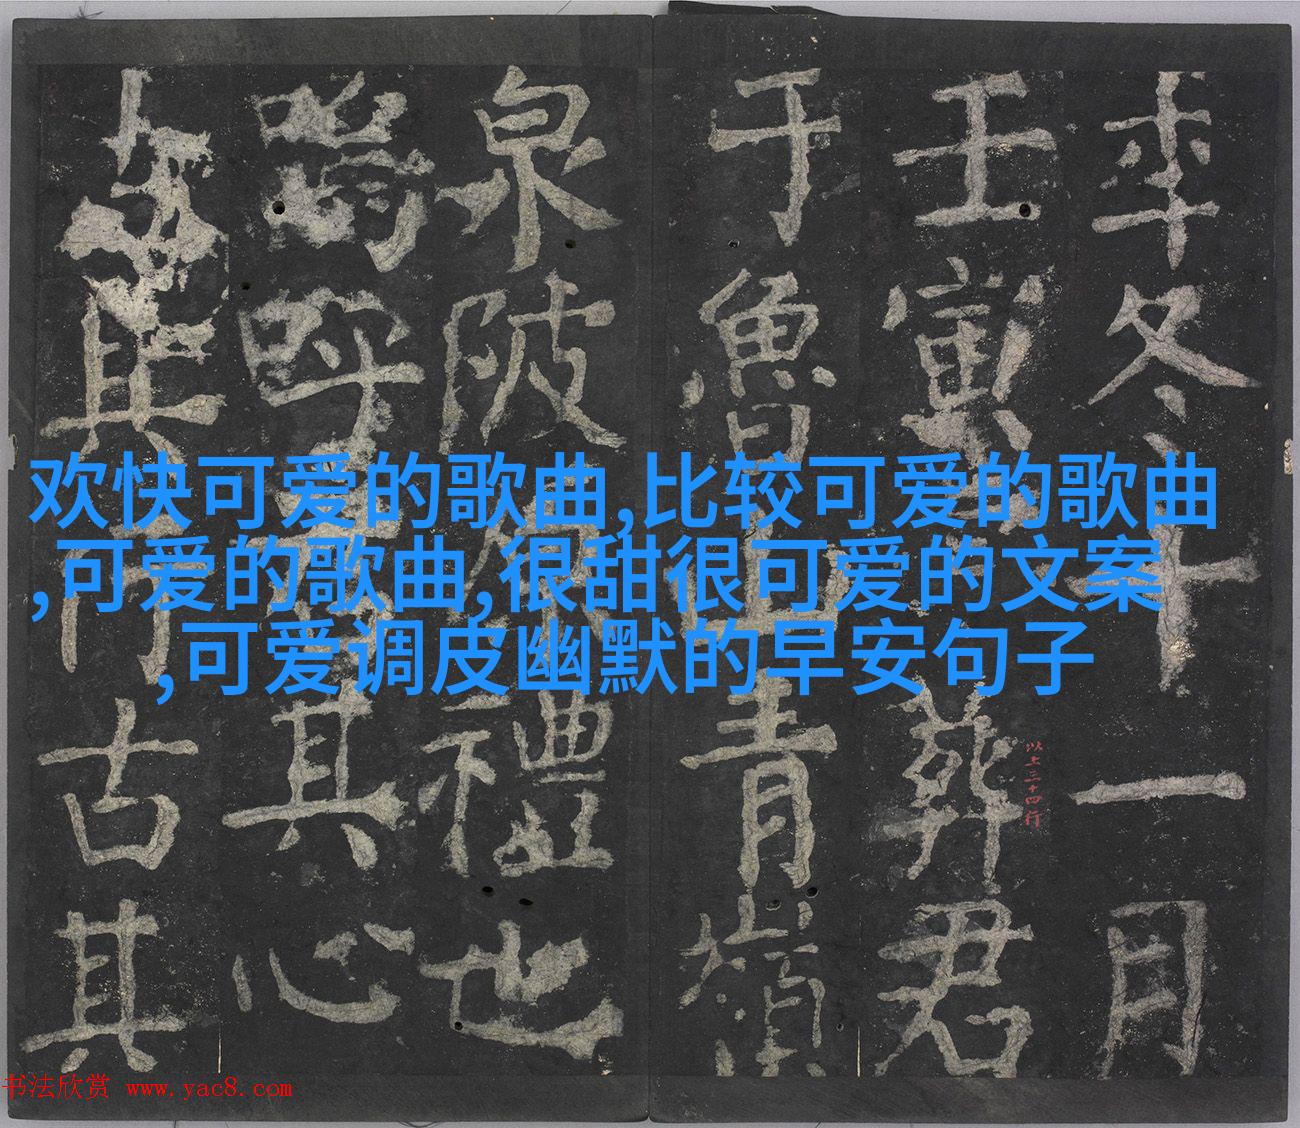 欢快可爱的歌曲,比较可爱的歌曲
,可爱的歌曲,很甜很可爱的文案
,可爱调皮幽默的早安句子
年冬十一月
壬寅葬君
以上三十四行
于魯山青嶺
泉陂原禮也
嗚呼其心
其行古其
书法欣赏 www.yac8.com